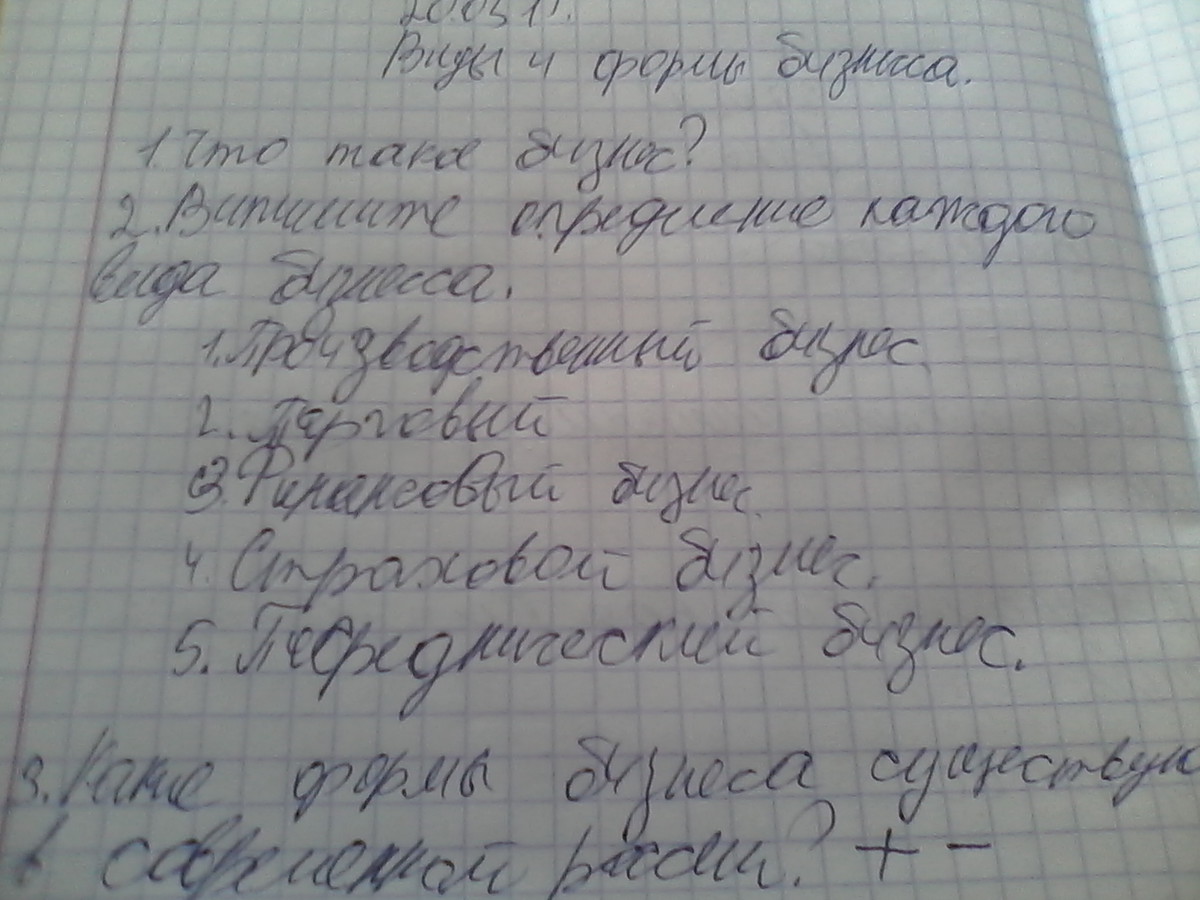 Виды и формы бизнеса.
1. Что такое бизнес?
2. Выпишите определение каждого
вида бизнеса.
1. Производственный бизнес.
2. Торговый
3. Финансовый бизнес.
4. Страховой бизнес.
5. Посреднический бизнес.
3. Какие формы бизнеса существую
в современной россии? + -